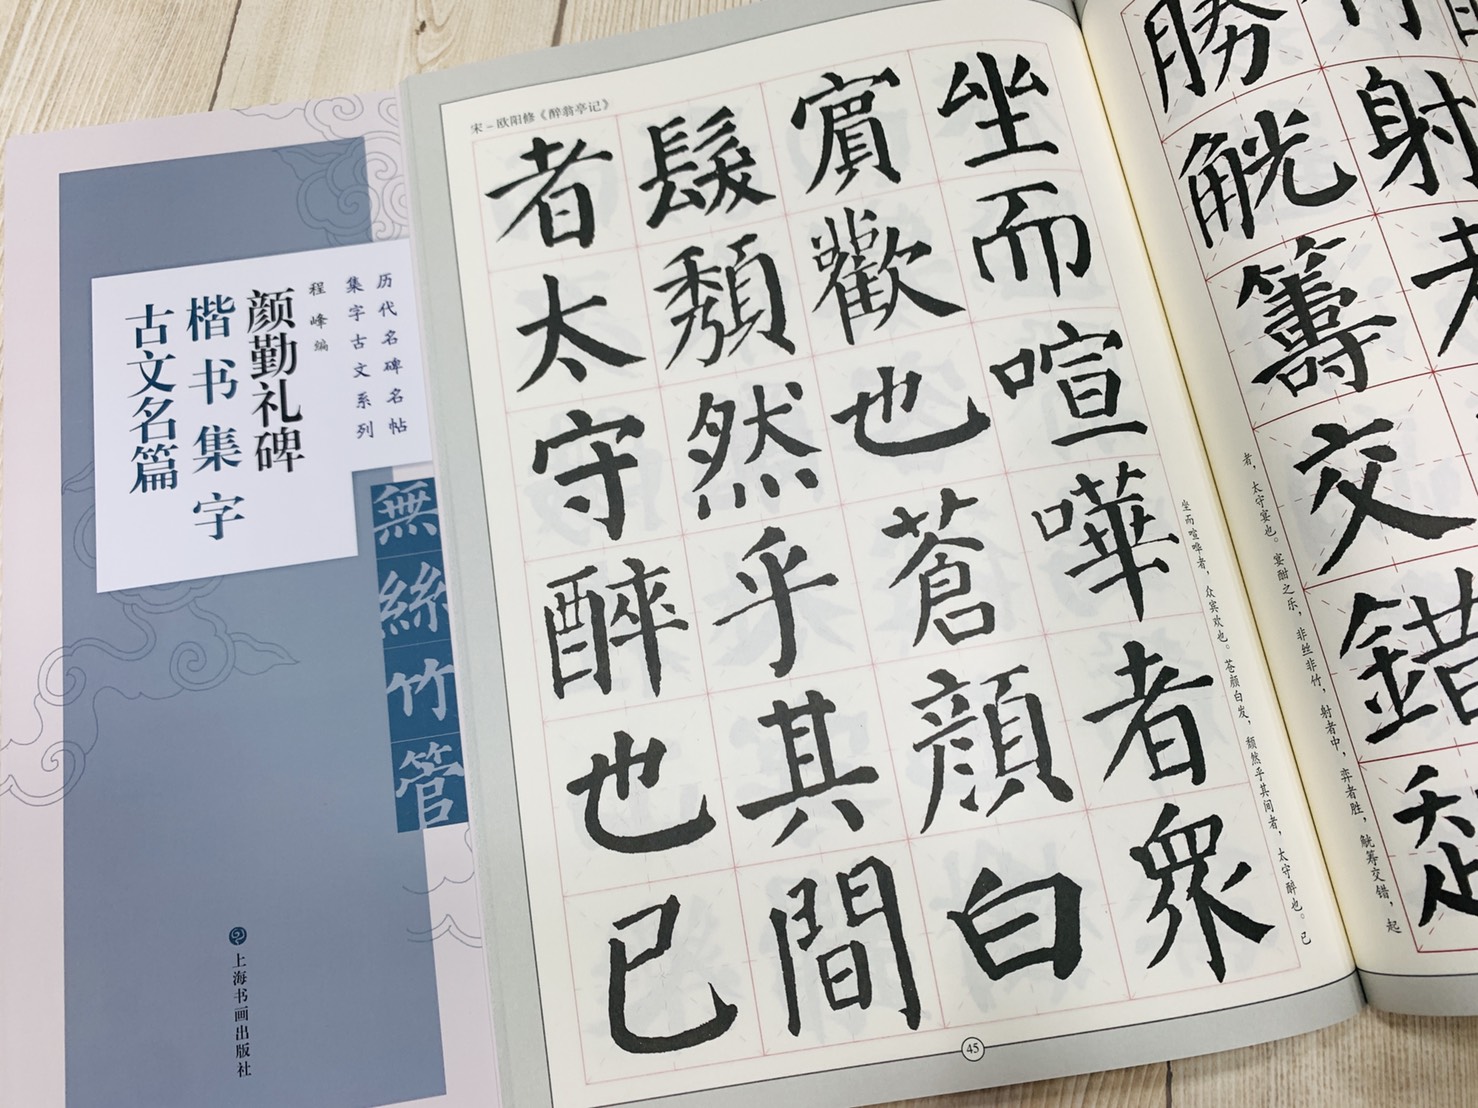 历代名碑名帖
集字古文系列
程峰编
颜勤礼碑
楷书集字
古文名篇
無絲竹管
上海书画出版社
者，太守宴也。宴酣之乐，非丝非竹，射者中，弈者胜，觥筹交错，起
竹射者
勝觥籌交錯起
宋－欧阳修《醉翁亭记》
坐而喧哗者，众宾欢也。苍颜白发，颓然乎其间者，太守醉也。已
坐而喧嘩者眾
賓歡也蒼顏白
髮頹然乎其間
者太守醉也已
45